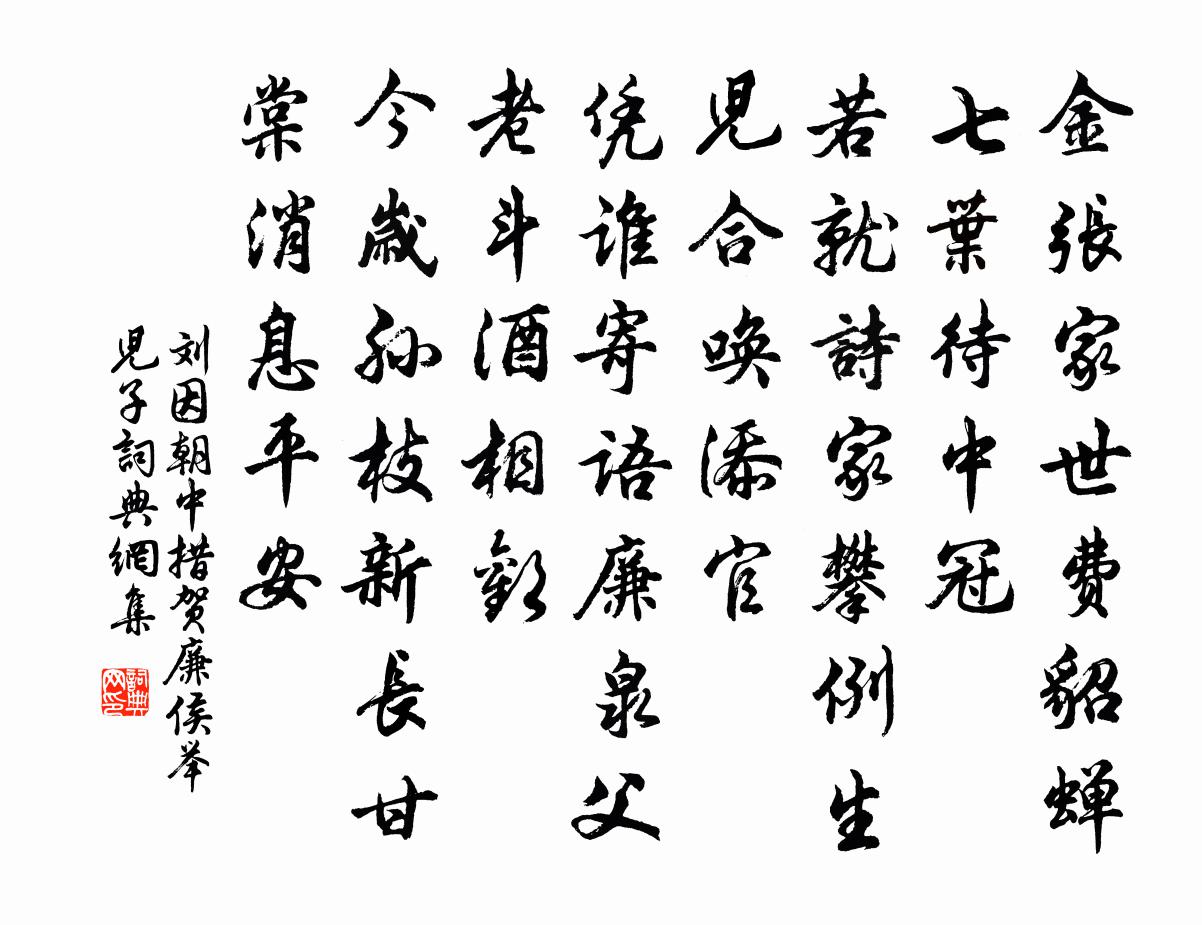 金張家世費貂蟬
七葉待中冠
若就詩家攀例生
児合喚添官
凭誰寄語廉泉父
老斗酒相歡
今歲孫枝新長甘
棠消息平安
刘因朝中措贺廉侯举
児子詞典網集
詞典网印